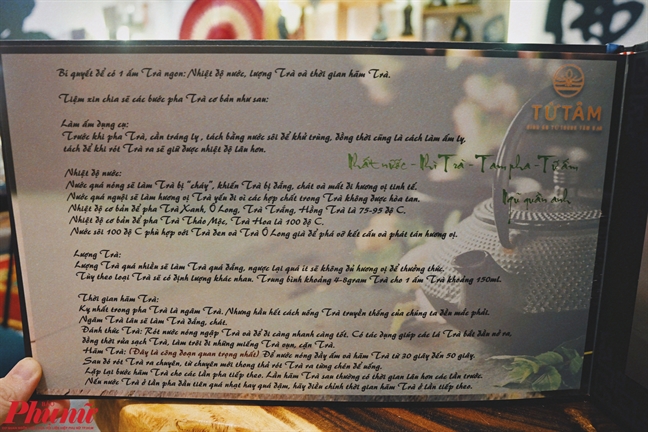 Bí quyết để có 1 ấm Trà ngon: Nhiệt độ nước, lượng Trà và thời gian hãm Trà.
Tiệm xin chia sẻ các bước pha Trà cơ bản như sau:
TỪ TÂM
Làm ấm dụng cụ:
Trước khi pha Trà, cần tráng ly, tách bằng nước sôi để khử trùng, đồng thời cũng là cách làm ấm ly,
tách để khi rót Trà ra sẽ giữ được nhiệt độ lâu hơn.
Nhất nước - Nhì Trà - Tam pha - Tứ ấm
Ngũ quần anh
Nhiệt độ nước:
Nước quá nóng sẽ làm Trà bị “cháy”, khiến Trà bị đắng, chát và mất đi hương vị tinh tế.
Nước quá nguội sẽ làm hương vị Trà yếu đi vì các hợp chất trong Trà không được hòa tan.
Nhiệt độ cơ bản để pha Trà Xanh, Ô Long, Trà Trắng, Hồng Trà là 75-95 độ C.
Nhiệt độ cơ bản để pha Trà Thảo Mộc, Trà Hoa là 100 độ C.
Nước sôi 100 độ C phù hợp với Trà đen và Trà Ô Long già để phá vỡ kết cấu và phát tán hương vị.
Lượng Trà:
Lượng Trà quá nhiều sẽ làm Trà quá đắng, ngược lại quá ít sẽ không đủ hương vị để thưởng thức.
Tùy theo loại Trà sẽ có định lượng khác nhau. Trung bình khoảng 4-8gram Trà cho 1 ấm Trà khoảng 150ml.
Thời gian hãm Trà:
Kỵ nhất trong pha Trà là ngâm Trà. Nhưng hầu hết cách uống Trà truyền thống của chúng ta đều mắc phải.
Ngâm Trà lâu sẽ làm Trà đắng, chát.
Đánh thức Trà: Rót nước nóng ngập Trà và đổ đi càng nhanh càng tốt. Có tác dụng giúp các lá Trà bắt đầu nở ra,
đồng thời rửa sạch Trà, làm trôi đi những miếng Trà vụn, cặn Trà.
Hãm Trà: (Đây là công đoạn quan trọng nhất) Đổ nước nóng đầy ấm và hãm Trà từ 30 giây đến 50 giây.
Sau đó rót Trà ra chuyên, từ chuyên mới trong thả rót Trà ra từng chén để uống.
Lặp lại bước hãm Trà cho các lần pha tiếp theo. Lần hãm Trà sau thường có thời gian lâu hơn các lần trước.
Nếu nước Trà ở lần pha đầu tiên quá nhạt hay quá đậm, hãy điều chỉnh thời gian hãm Trà ở lần tiếp theo.
Phunu